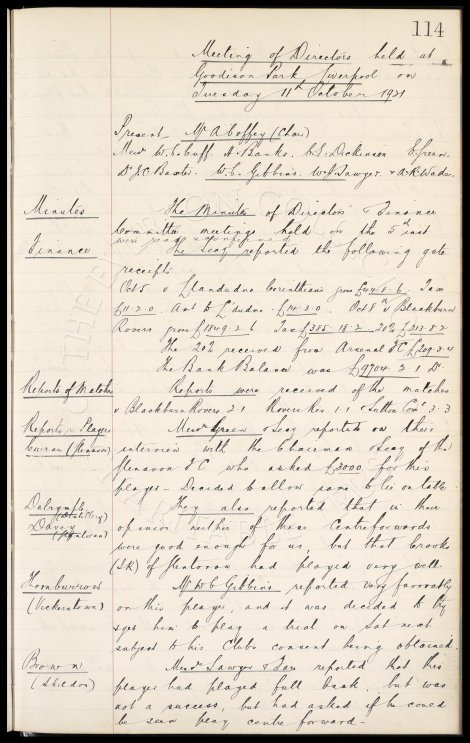 114
Meeting of Directors held at
Goodison Park Liverpool on
Tuesday 11th October 1921
Present Mr A Coffey (Chair)
Messrs W.C. Cuff. A. Banks. C.E. Dickinson E. Green.
Dr J.C. Baxter. W.C. Gibbins. W.J. Sawyer. & A.R. Wade.
Minutes
The Minutes of Directors & Finance
Committee meetings held on the 5th inst
were read & confirmed
Finance
The Secy reported the following gate
receipts
Oct 5 v Llandudno Corinthians gross £44.8.6. Tax
£11.2.0. Amt to L'dudno £10.3.0. Oct 8th v Blackburn
Rovers gross £1849.2.6. Tax £385.18.2 20% £213.8.2
The 20% received from Arsenal F.C. £209.3.4
The Bank Balance was £9704.2.1 Dr.
Reports of Matches
Reports were received of the matches
v Blackburn Rovers 2.1 Rovers Res 1.1 & Sutton Comn 3-3
Reports re Players
Messrs Green & Secy reported on their
Curran (Glenavon)
interview with the Chairman & Secy of the
Glenavon F.C. who asked £3000 for this
player - Decided to allow same to lie on table
Dalrymple
(Distillery)
They also reported that in their
Davey
opinion neither of these centreforwards
were good enough for us, but that Crooks
(I.R.) of Glentoran had played very well.
Thornburrow
(Vickerstown)
Mr W.C. Gibbins reported very favorably
on this player, and it was decided to try
& get him to play a trial on Sat next
subject to his Clubs consent being obtained.
Brown
(Shildon)
Messrs Sawyer & reported that this
player had played full back, but was
not a success, but had asked if he could
be seen play centre forward -